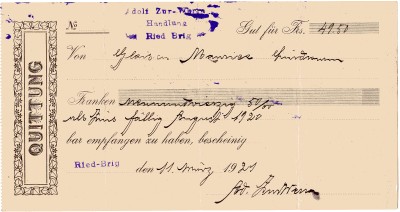 Adolf Zur-Werra
Handlung
Ried Brig
No
Gut für Frs. 49.50
Von
Franken Neunundvierzig 50/00
als Zins fällig August 1920
bar empfangen zu haben, bescheinigt
Ried-Brig den 11. März 1921
Ad. ZurWerra
QUITTUNG